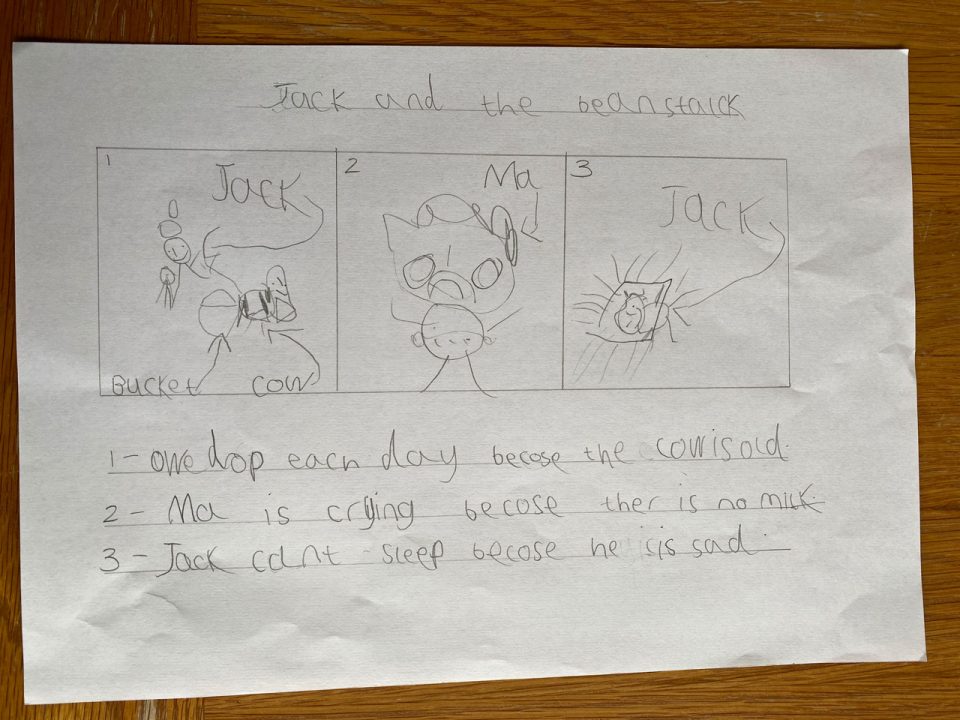 Jack and the beanstalck
1 2 3
Jack Ma Jack
Bucket cow
1 - owe drop each day becose the cow is old.
2 - Ma is crying becose ther is no milk.
3 - Jack cant sleep becose he is sad.